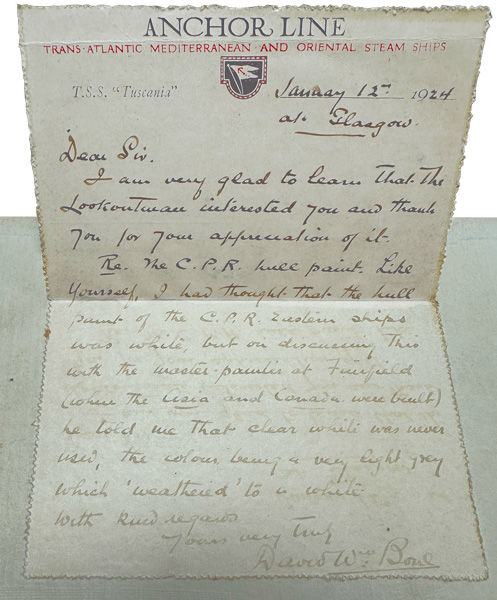 ANCHOR LINE
TRANS-ATLANTIC MEDITERRANEAN AND ORIENTAL STEAM SHIPS
T.S.S. "Tuscania"
January 12th 1924
at Glasgow.
Dear Sir.
I am very glad to learn that The
Lookoutman interested you and thank
you for your appreciation of it.
Re. The C.P.R. hull paint. Like
yourself, I had thought that the hull
paint of the C.P.R. Eastern ships
was white, but on discussing this
with the master-painter at Fairfield
(where the Asia and Canada were built)
he told me that clear white was never
used, the colour being a very light grey
which 'weathered' to a white.
With kind regards
Yours very truly
David Wm Bone